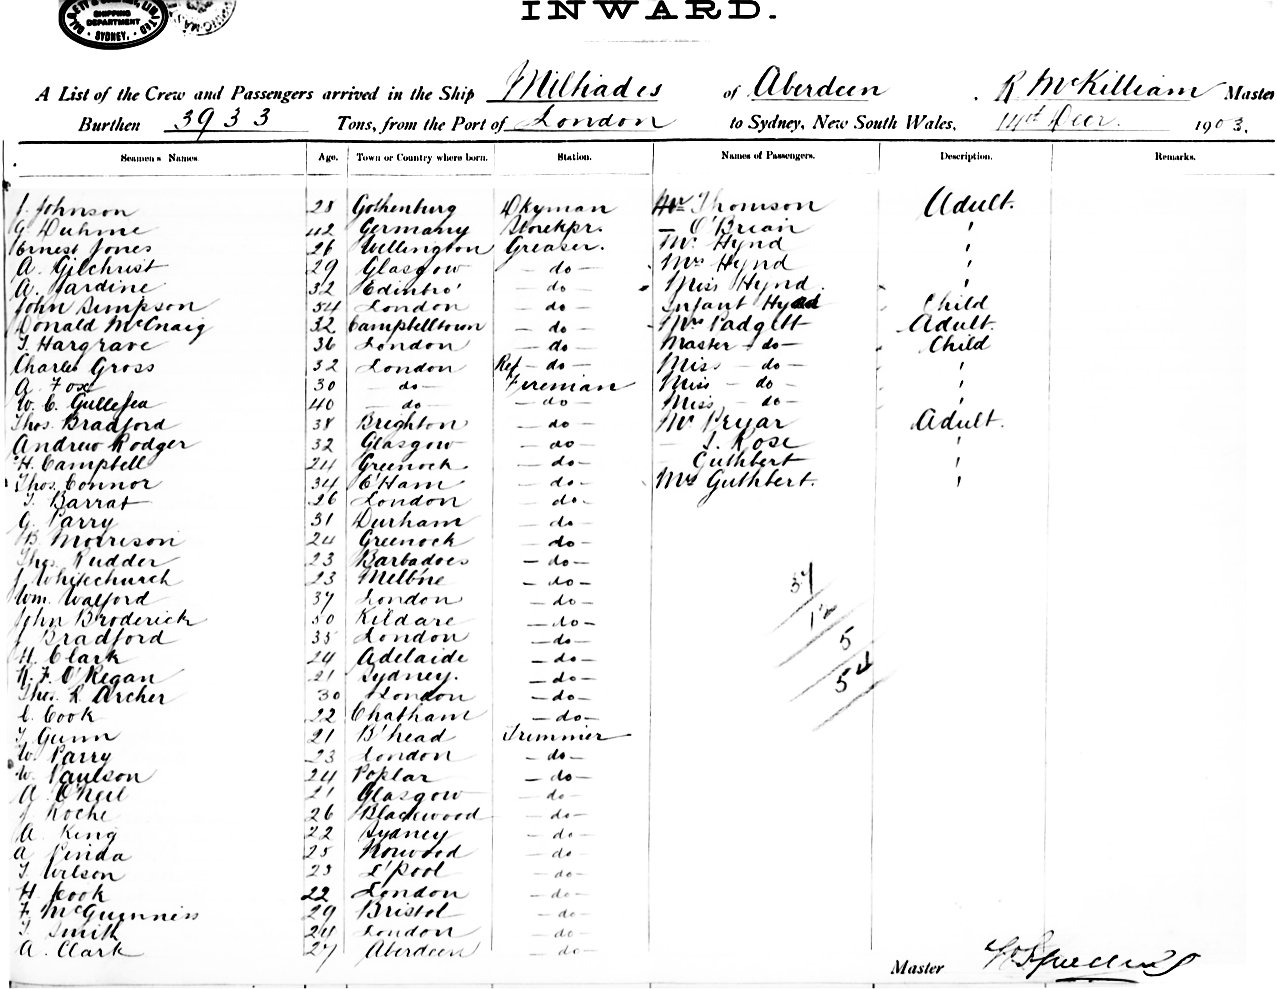 DALGETY & COMPANY LIMITED
SHIPPING DEPARTMENT
SYDNEY.
INWARD.
A List of the Crew and Passengers arrived in the Ship Miltiades of Aberdeen R McKilliam Master
Burthen 3933 Tons, from the Port of London to Sydney, New South Wales, 14th Decr. 1903.
Seamen's Names. Age. Town or Country where born. Station. Names of Passengers. Description. Remarks.
J. Johnson 28 Gothenburg Dkyman Mr Thomson Adult.
G. Duhme 42 Germany Storekpr. — O'Brian "
Ernest Jones 26 Wellington Greaser. Mr Hynd "
A. Gilchrist 29 Glasgow — do — Mrs Hynd "
A. Jardine 32 Edinbro' — do — Miss Hynd. "
John Simpson 54 London — do — Infant Hynd Child
Donald McCraig 32 Campbelltown — do — Mrs Padgett Adult.
T. Hargrave 36 London — do — Master — do — Child
Charles Gross 32 London Ref — do — Miss — do — "
A. Fox 30 — do — Fireman Miss — do — "
W. C. Gullefea 40 — do — — do — Miss — do — "
Thos. Bradford 38 Brighton — do — Mr Pryar Adult.
Andrew Rodger 32 Glasgow — do — — J. Rose "
H. Campbell 24 Greenock — do — Guthbert "
Thos. Connor 34 O'Ham — do — Mrs Guthbert. "
T. Barrat 26 London — do —
G. Parry 31 Durham — do —
B. Morrison 24 Greenock — do —
Thos. Rudder 23 Barbadoes — do —
J. Whitechurch 23 Melb'ne — do —
Wm. Walford 37 London — do —
John Broderick 50 Kildare — do —
J. Bradford 35 London — do —
H. Clark 24 Adelaide — do —
R. F. O'Regan 21 Sydney. — do —
Thos. R. Archer 30 London — do —
C. Cook 22 Chatham — do —
T. Gunn 21 B'head Trimmer
W. Parry 23 London — do —
W. Paulson 24 Poplar — do —
A. O'Neil 21 Glasgow — do —
J. Roche 26 Blackwood — do —
A. King 22 Sydney — do —
A. Pinda 25 Norwood — do —
T. Wilson 23 L'pool — do —
H. Cook 22 London — do —
F. McGuinness 29 Bristol — do —
T. Smith 24 London — do —
A. Clark 27 Aberdeen — do —
37
5
54
Master